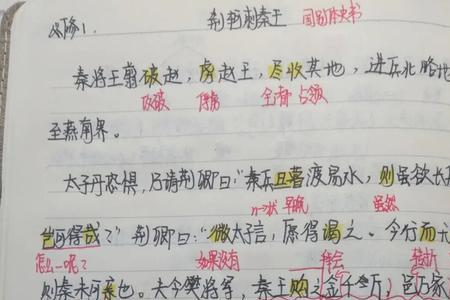 必修1. 荆轲刺秦王 国别体史书
秦将王翦破赵,虏赵王,尽收其地,进兵北略地
攻破 俘虏 全部 占领
至燕南界。
太子丹恐惧,乃请荆卿曰:“秦兵且暮渡易水,则虽欲长
n→状 早晚 虽然
岂可得哉?”荆卿曰:“微太子言,臣愿得谒之。今行而无
怎么…呢? 如果没有 拜会 转折
则秦未可亲也。夫今樊将军,秦王购之金千斤,邑万家